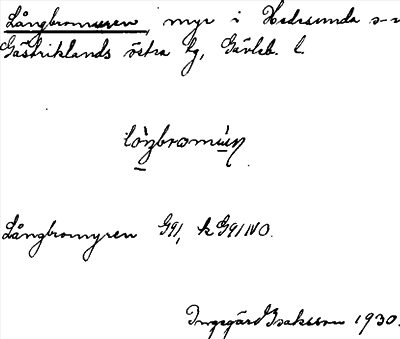 Långbromuren, myr i Hedesunda s-n
Gästriklands östra tg, Gävleb. l.
Långbromyren G91, k G91 NO.
Ingegärd Isaksson 1930.